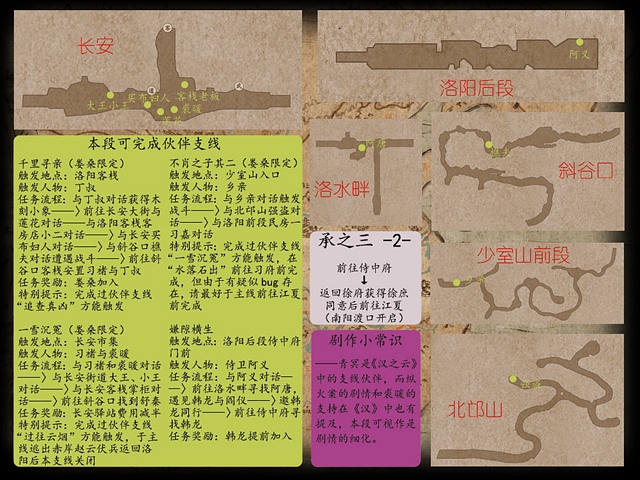 长安
大王小王
买布妇人
客栈老板
裴暖
洛阳后段
阿义
洛水畔
斜谷口
少室山前段
北邙山
本段可完成伙伴支线
千里寻亲（娄桑限定）
触发地点：洛阳客栈
触发人物：丁叔
任务流程：与丁叔对话获得木
刻小象——〉前往长安大街与
莲花对话——与洛阳客栈客
房店小二对话——〉与长安买
布妇人对话——〉与斜谷口樵
夫对话遭遇战斗——〉前往斜
谷口客栈安置习禇与丁叔
任务奖励：娄桑加入
特别提示：完成过伙伴支线
“追查真凶”方能触发
一雪沉冤（娄桑限定）
触发地点：长安市集
触发人物：习禇与裘暖
任务流程：与习禇和裘暖对话
——〉与长安街道大王、小王
对话——〉与长安客栈掌柜对
话——〉前往斜谷口找到舒秦
任务奖励：长安驿站费用减半
特别提示：完成过伙伴支线
“过往云烟”方能触发，于主
线逃出赤岸赵云伏兵返回洛
阳后本支线关闭
不肖之子其二（娄桑限定）
触发地点：少室山入口
触发人物：乡亲
任务流程：与乡亲对话触发
战斗——〉与北邙山强盗对
话——〉与洛阳前段民房一
习嘉对话
特别提示：完成过伙伴支线
“一雪沉冤”方能触发，在
“水落石出”前往习府前完
成，但由于有疑似 bug 存
在，请最好于主线前往江夏
前完成
嫌隙横生
触发地点：洛阳后段侍中府
门前
触发人物：侍卫阿义
任务流程：与阿义对话—
—〉前往洛水畔寻找阿唐，
遇见韩龙与阎仪——〉邀韩
龙同行——〉前往侍中府寻
找韩龙
任务奖励：韩龙提前加入
承之三 -2-
前往侍中府
↓
返回徐府获得徐庶
同意后前往江夏
（南阳渡口开启）
剧作小常识
——青冥是《汉之云》
中的支线伙伴，而纵
火案的剧情和裘暖的
支持在《汉》中也有
提及，本段可视作是
剧情的细化。